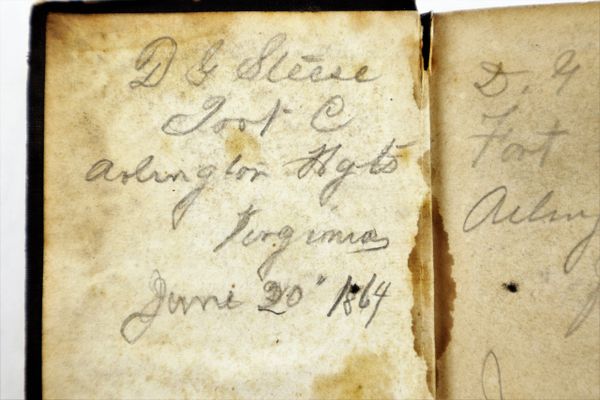 D G Steese
Foot C
Arlington Hgts
Virginia
June 20" 1864
D. G
Fort
Arling